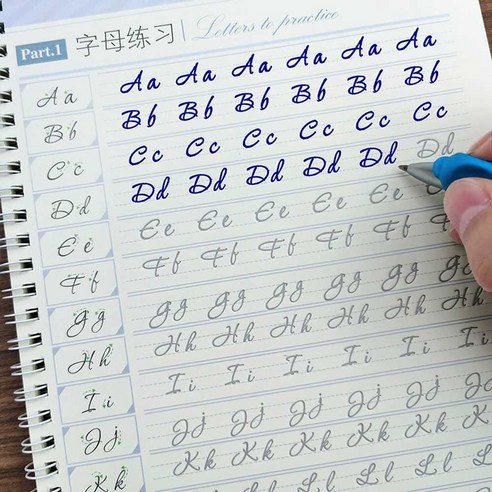 Part.1 字母练习 Letters to practice
Aa Aa Aa Aa Aa Aa Aa
Bb Bb Bb Bb Bb Bb Bb
Cc Cc Cc Cc Cc Cc Cc
Dd Dd Dd Dd Dd Dd Dd
Ee Ee Ee Ee Ee Ee
Ff Ff Ff Ff Ff Ff
Gg Gg Gg Gg Gg Gg Gg
Hh Hh Hh Hh Hh Hh Hh
Ii Ii Ii Ii Ii Ii Ii
Jj Jj Jj Jj Jj Jj
Kk Kk Kk Kk Kk Kk
Ll Ll Ll Ll Ll